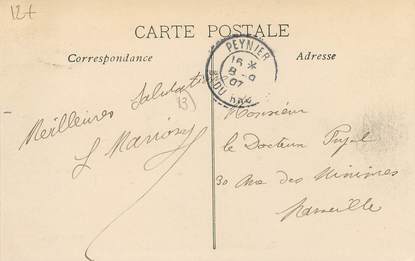 12+
CARTE POSTALE
Correspondance
Adresse
PEYNIER
15 *
8 - 9
07
Meilleures Salutations
13
L Marrosy
Monsieur
le Docteur Pujol
30 Rue des Minimes
Marseille